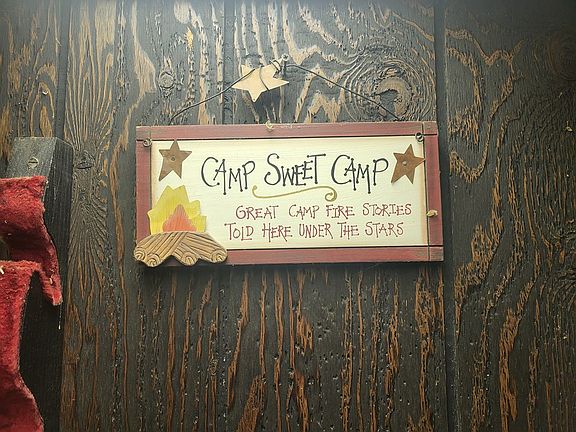 Camp Sweet Camp
Great Camp Fire Stories
Told Here Under The Stars